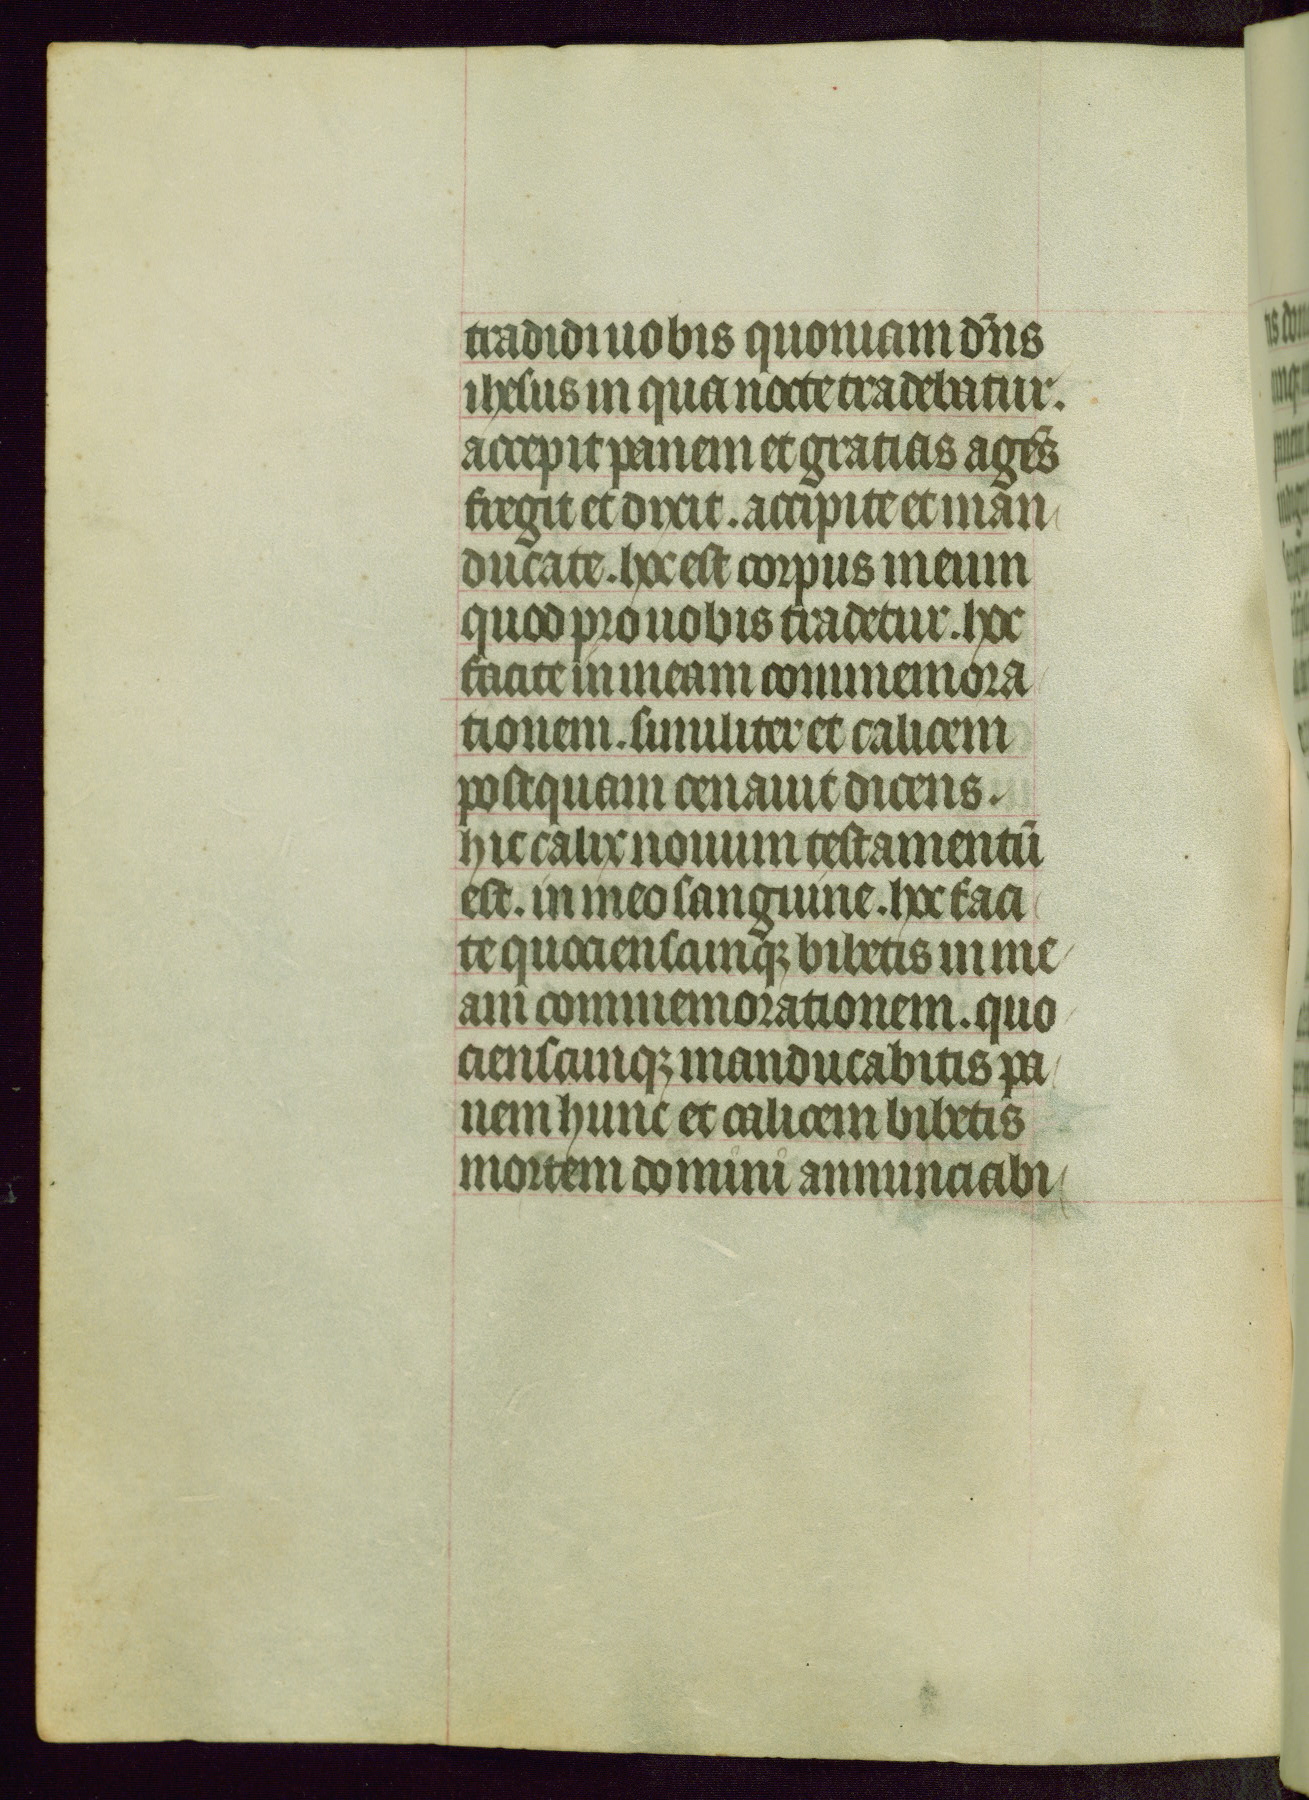 tradidi uobis quoniam dn̄s
ihesus in qua nocte tradebatur.
accepit panem et gratias agēs
fregit et dixit. accipite et man
ducate. hoc est corpus meum
quod pro uobis tradetur. hoc
facite in meam commemora
tionem. similiter et calicem
postquam cenauit dicens.
hic calix nouum testamentū
est. in meo sanguine. hoc faci
te quocienscumqꝫ bibetis in me
am commemorationem. quo
cienscumqꝫ manducabitis pa
nem hunc et calicem bibetis
mortem domini annunciabi